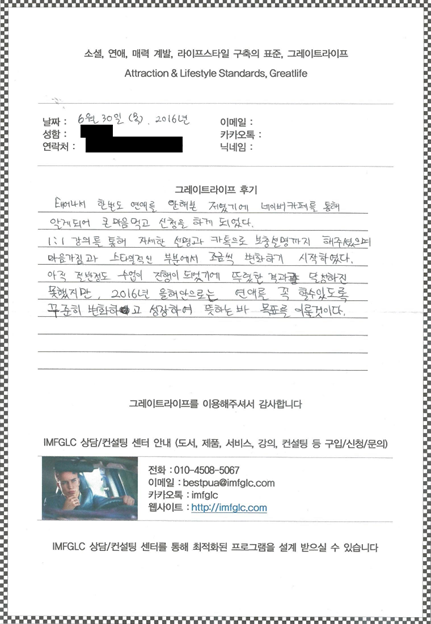 소셜, 연애, 매력 계발, 라이프스타일 구축의 표준, 그레이트라이프
Attraction & Lifestyle Standards, Greatlife
날짜 : 6월 30일 (목), 2016년 이메일 :
성함 : 카카오톡 :
연락처 : 닉네임 :
그레이트라이프 후기
태어나서 한번도 연애를 안해본 저였기에 네이버카페를 통해
알게되어 큰마음먹고 신청을 하게 되었다.
1:1 강의를 통해 자세한 설명과 카톡으로 보충설명까지 해주셨으며
마음가짐과 스타일적인 부분에서 조금씩 변화하기 시작하였다.
아직 절반정도 수업이 진행이 되었기에 뚜렷한 결과를 달성하진
못했지만, 2016년 올해안으로는 연애를 꼭 할수있도록
꾸준히 변화하고 성장하여 뜻하는바 목표를 이룰것이다.
그레이트라이프를 이용해주셔서 감사합니다
IMFGLC 상담/컨설팅 센터 안내 (도서, 제품, 서비스, 강의, 컨설팅 등 구입/신청/문의)
전화 : 010-4508-5067
이메일 : bestpua@imfglc.com
카카오톡 : imfglc
웹사이트 : http://imfglc.com
IMFGLC 상담/컨설팅 센터를 통해 최적화된 프로그램을 설계 받으실 수 있습니다